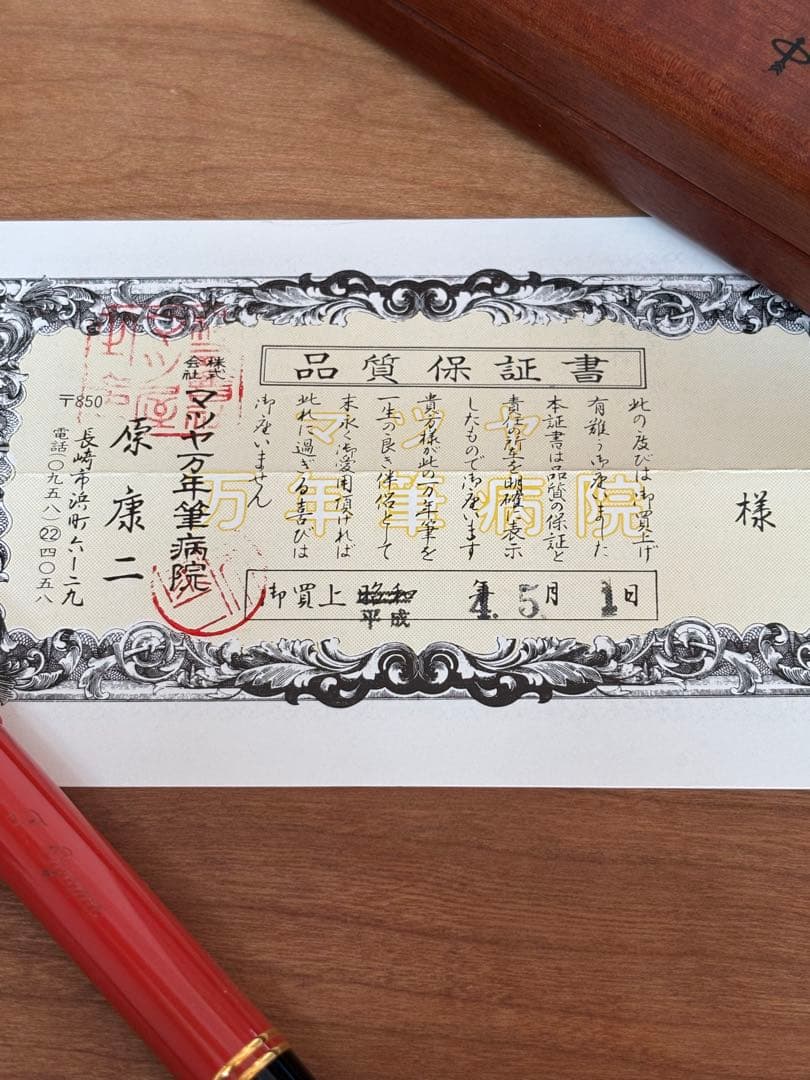 品質保証書
様
此の度びは御買上げ
有難う御座いました
本証書は品質の保証と
責任の所在を明確に表示
したもので御座います
貴方様が此の万年筆を
一生の良き伴侶として
末永く御愛用頂ければ
此れに過ぎる喜びは
御座いません
マツヤ
万年筆病院
御買上 昭和 年 4. 5月 1日
平成
株式会社 マツヤ万年筆病院
原康二
〒850
長崎市浜町六ー二九
電話(〇九五八)㉒四〇五八